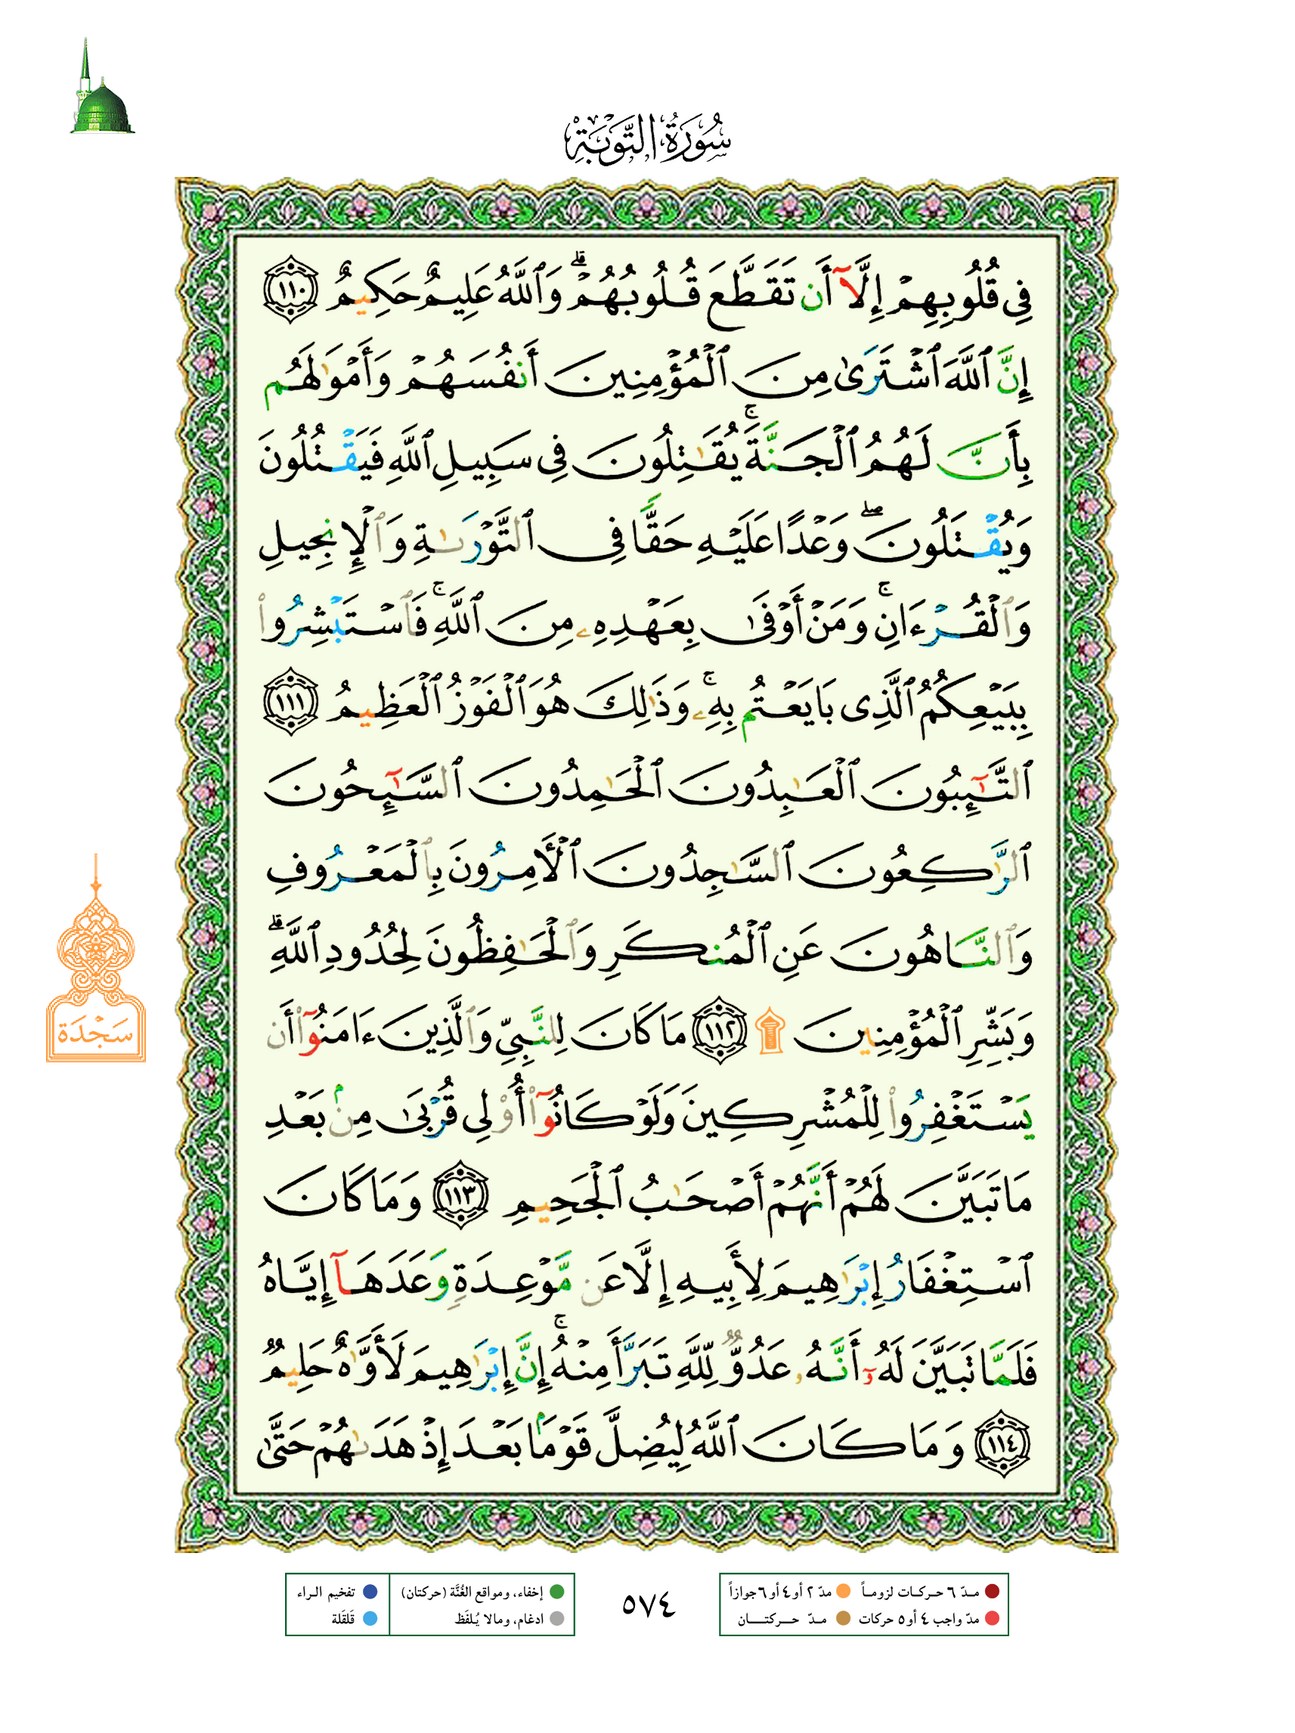 سُورَةُ التَّوۡبَةِ
فِي قُلُوبِهِمۡ إِلَّآ أَن تَقَطَّعَ قُلُوبُهُمۡۗ وَٱللَّهُ عَلِيمٌ حَكِيمٌ ١١٠
إِنَّ ٱللَّهَ ٱشۡتَرَىٰ مِنَ ٱلۡمُؤۡمِنِينَ أَنفُسَهُمۡ وَأَمۡوَٰلَهُم
بِأَنَّ لَهُمُ ٱلۡجَنَّةَۚ يُقَٰتِلُونَ فِي سَبِيلِ ٱللَّهِ فَيَقۡتُلُونَ
وَيُقۡتَلُونَۖ وَعۡدًا عَلَيۡهِ حَقّٗا فِي ٱلتَّوۡرَىٰةِ وَٱلۡإِنجِيلِ
وَٱلۡقُرۡءَانِۚ وَمَنۡ أَوۡفَىٰ بِعَهۡدِهِۦ مِنَ ٱللَّهِۚ فَٱسۡتَبۡشِرُواْ
بِبَيۡعِكُمُ ٱلَّذِي بَايَعۡتُم بِهِۦۚ وَذَٰلِكَ هُوَ ٱلۡفَوۡزُ ٱلۡعَظِيمُ ١١١
ٱلتَّٰٓئِبُونَ ٱلۡعَٰبِدُونَ ٱلۡحَٰمِدُونَ ٱلسَّٰٓئِحُونَ
ٱلرَّٰكِعُونَ ٱلسَّٰجِدُونَ ٱلۡأٓمِرُونَ بِٱلۡمَعۡرُوفِ
وَٱلنَّاهُونَ عَنِ ٱلۡمُنكَرِ وَٱلۡحَٰفِظُونَ لِحُدُودِ ٱللَّهِۗ
وَبَشِّرِ ٱلۡمُؤۡمِنِينَ ١١٢ مَا كَانَ لِلنَّبِيِّ وَٱلَّذِينَ ءَامَنُوٓاْ أَن
يَسۡتَغۡفِرُواْ لِلۡمُشۡرِكِينَ وَلَوۡ كَانُوٓاْ أُوْلِي قُرۡبَىٰ مِنۢ بَعۡدِ
مَا تَبَيَّنَ لَهُمۡ أَنَّهُمۡ أَصۡحَٰبُ ٱلۡجَحِيمِ ١١٣ وَمَا كَانَ
ٱسۡتِغۡفَارُ إِبۡرَٰهِيمَ لِأَبِيهِ إِلَّا عَن مَّوۡعِدَةٖ وَعَدَهَآ إِيَّاهُ
فَلَمَّا تَبَيَّنَ لَهُۥٓ أَنَّهُۥ عَدُوّٞ لِّلَّهِ تَبَرَّأَ مِنۡهُۚ إِنَّ إِبۡرَٰهِيمَ لَأَوَّٰهٌ حَلِيمٞ
١١٤ وَمَا كَانَ ٱللَّهُ لِيُضِلَّ قَوۡمَۢا بَعۡدَ إِذۡ هَدَىٰهُمۡ حَتَّىٰ
سَجۡدَة
مدّ ٦ حركات لزوماً
مدّ ٢ أو ٤ أو ٦ جوازاً
مدّ واجب ٤ أو ٥ حركات
مدّ حركتان
٥٧٤
إخفاء، ومواقع الغُنَّة (حركتان)
تفخيم الراء
ادغام، ومالا يُلفَظ
قَلقَلة